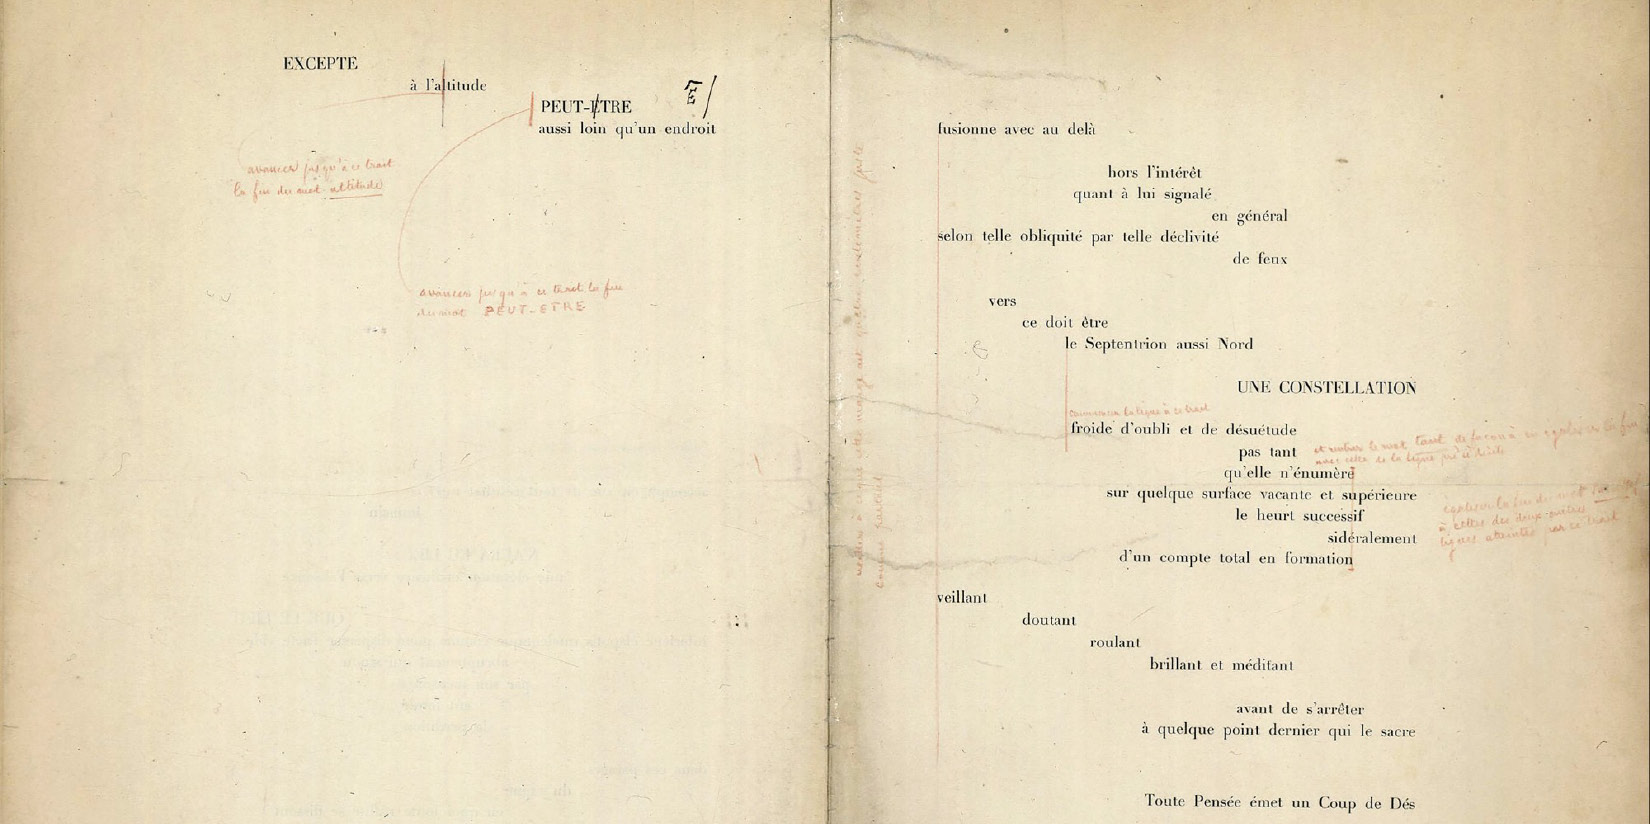 EXCEPTE
à l'altitude
PEUT-ETRE
É/
aussi loin qu'un endroit
avancer jusqu'à ce trait
la fin du mot altitude
avancer jusqu'à ce trait la fin
du mot PEUT-ETRE
fusionne avec au delà
hors l'intérêt
quant à lui signalé
en général
selon telle obliquité par telle déclivité
de feux
vers
ce doit être
le Septentrion aussi Nord
UNE CONSTELLATION
commencer la ligne à ce trait
froide d'oubli et de désuétude
pas tant
et rentrer le mot tant de façon à en égaliser la fin
avec celle de la ligne précédente
qu'elle n'énumère
sur quelque surface vacante et supérieure
le heurt successif
sidéralement
d'un compte total en formation
égaliser la fin du mot
à celles des deux autres
lignes atteintes par ce trait
veillant
doutant
roulant
brillant et méditant
avant de s'arrêter
à quelque point dernier qui le sacre
Toute Pensée émet un Coup de Dés